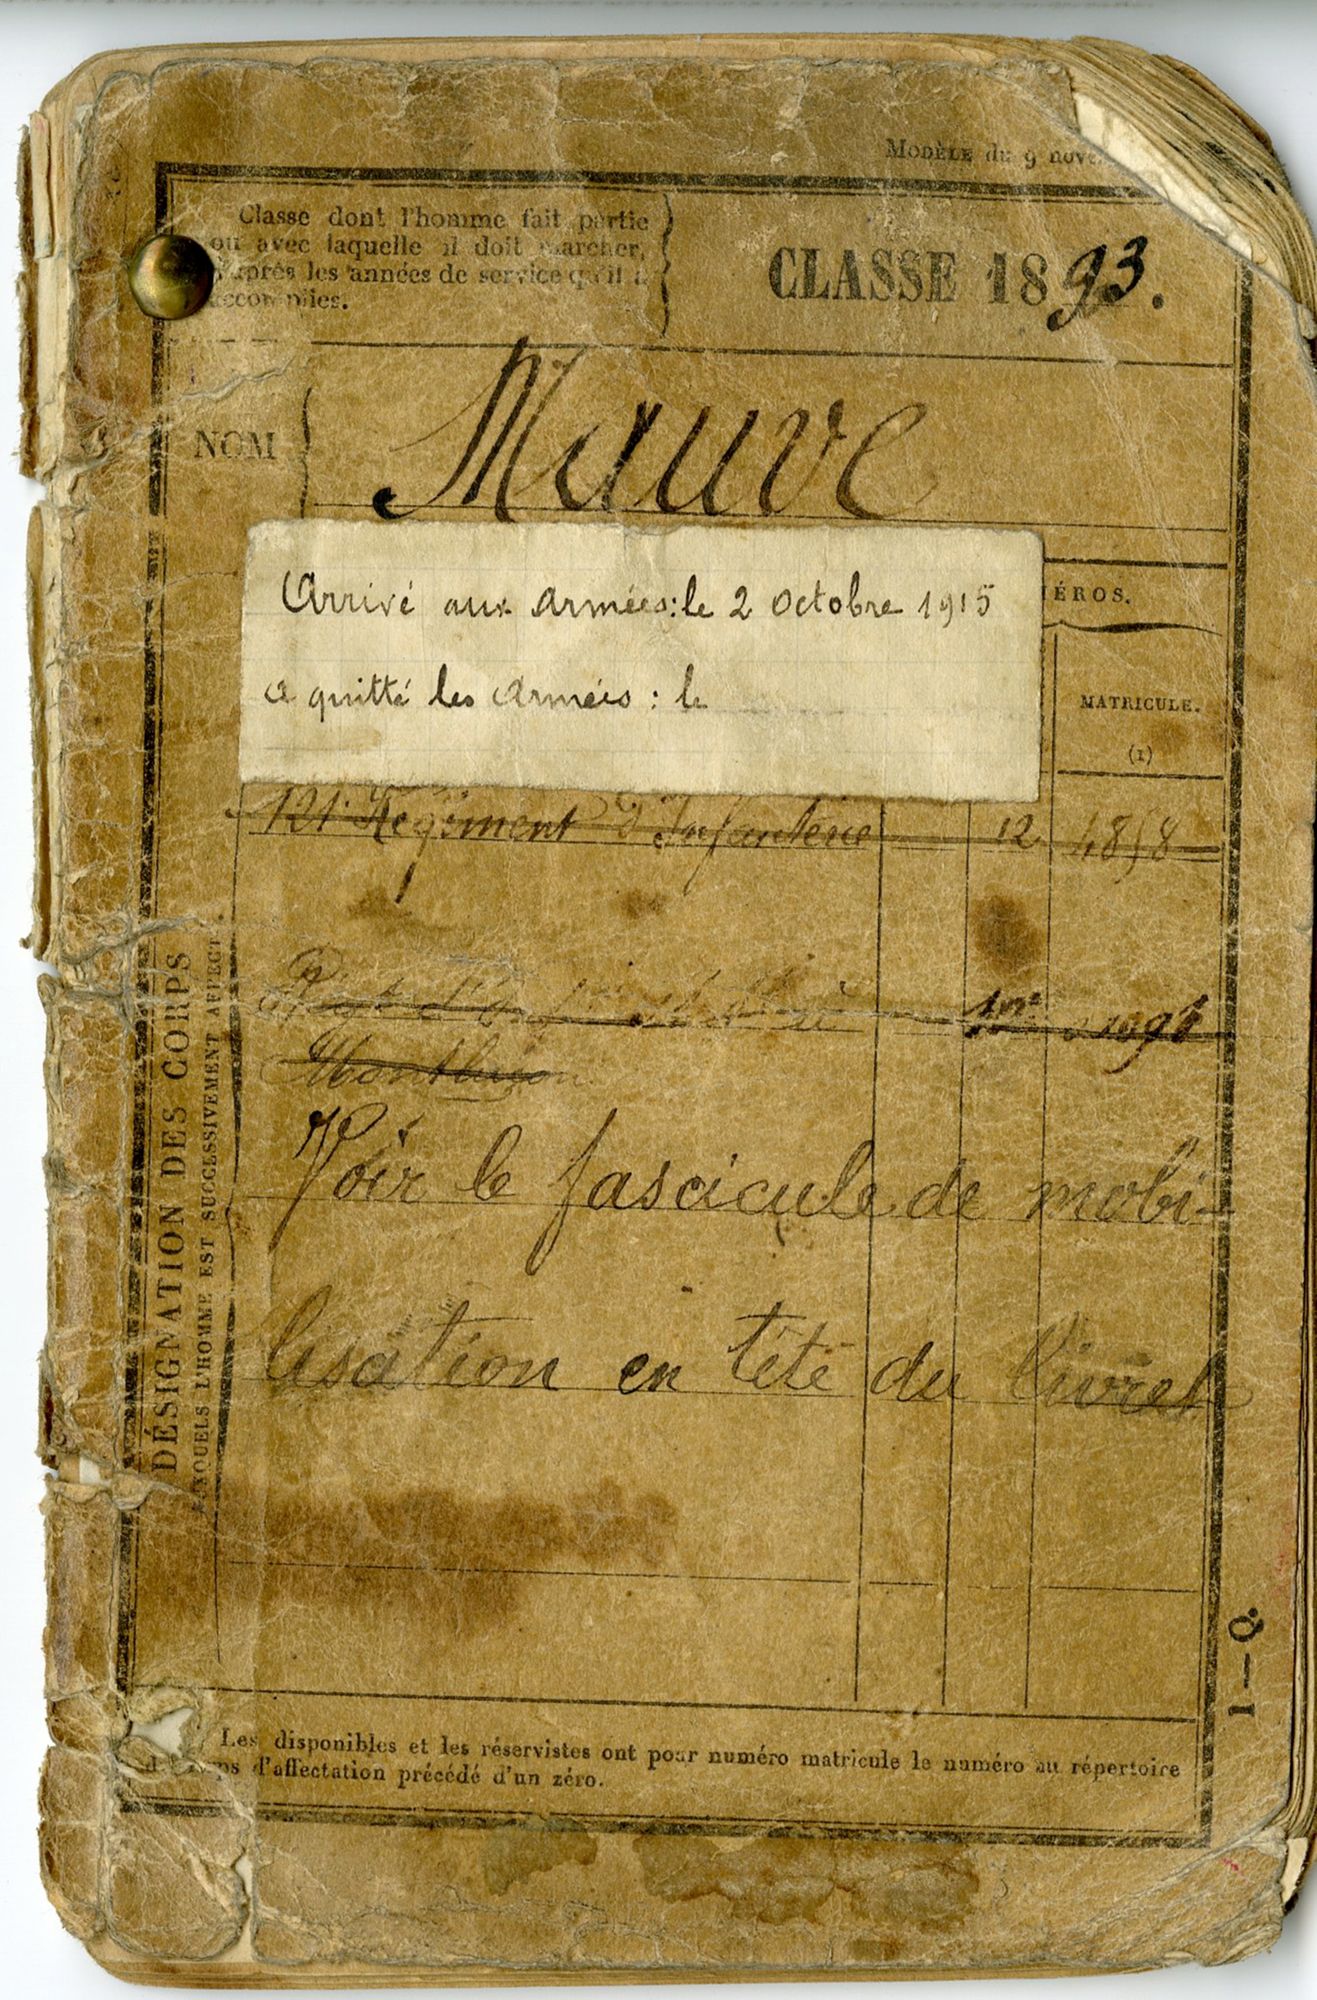 MODÈLE du 9 nove
Classe dont l'homme fait partie
ou avec laquelle il doit marcher,
d'après les années de service qu'il a
accomplies.
CLASSE 1893.
NOM
Mauve
Arrivé aux Armées: le 2 Octobre 1915
a quitté les Armées : le
ÉROS.
MATRICULE.
(1)
121e Régiment d'Infanterie 12 4858
Montluçon
Voir le fascicule de mobi-
lisation en tête du livret
DÉSIGNATION DES CORPS
AUXQUELS L'HOMME EST SUCCESSIVEMENT AFFECT
I—Q.
Les disponibles et les réservistes ont pour numéro matricule le numéro au répertoire
d'affectation précédé d'un zéro.